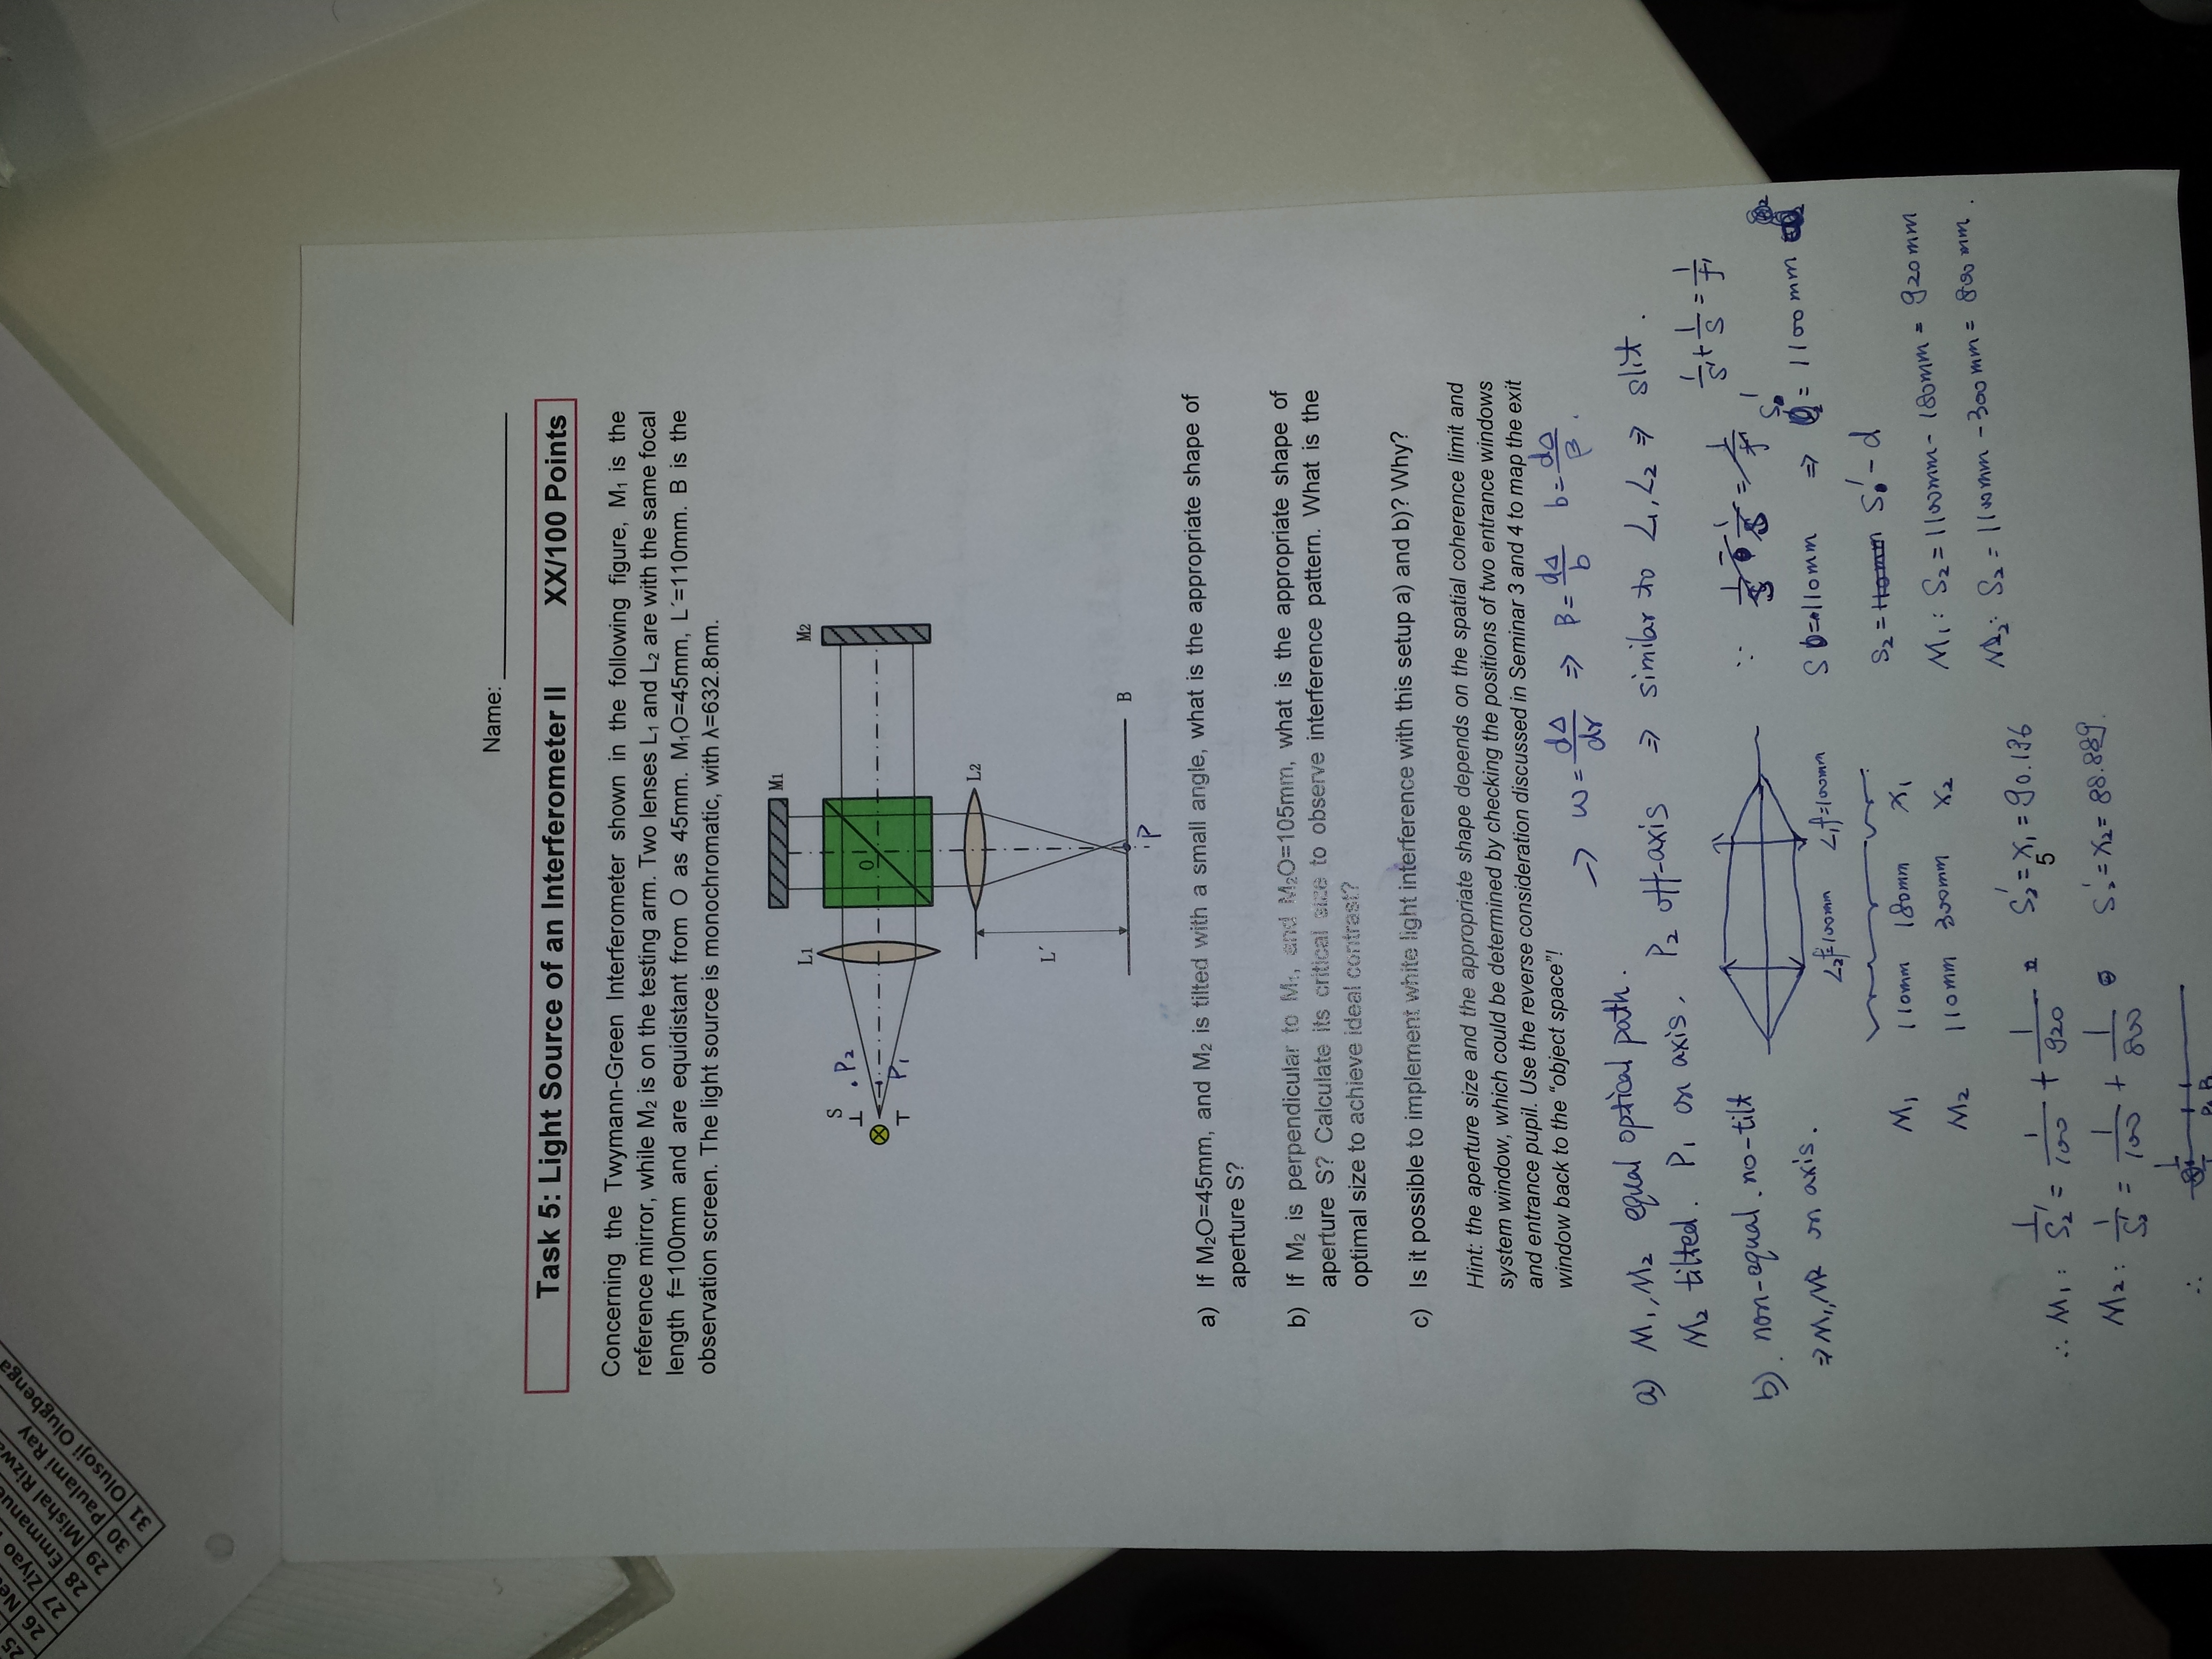 Name:
Task 5: Light Source of an Interferometer II XX/100 Points
Concerning the Twymann-Green Interferometer shown in the following figure, M1 is the
reference mirror, while M2 is on the testing arm. Two lenses L1 and L2 are with the same focal
length f=100mm and are equidistant from O as 45mm. M1O=45mm, L´=110mm. B is the
observation screen. The light source is monochromatic, with λ=632.8nm.
M1
M2
L1
S
. P2
P1
O
L2
L´
B
P
a) If M2O=45mm, and M2 is tilted with a small angle, what is the appropriate shape of
aperture S?
b) If M2 is perpendicular to M1, and M2O=105mm, what is the appropriate shape of
aperture S? Calculate its critical size to observe interference pattern. What is the
optimal size to achieve ideal contrast?
c) Is it possible to implement white light interference with this setup a) and b)? Why?
Hint: the aperture size and the appropriate shape depends on the spatial coherence limit and
system window, which could be determined by checking the positions of two entrance windows
and entrance pupil. Use the reverse consideration discussed in Seminar 3 and 4 to map the exit
window back to the “object space”!
→ ω = dΔ/dr ⇒ β = dΔ/b b = dΔ/β .
a) M1, M2 equal optical path.
M2 tilted. P1 on axis. P2 off-axis ⇒ similar to L1, L2 ⇒ slit.
b). non-equal. no-tilt
⇒ M1, M2 on axis.
L2f=100mm L1f=100mm
M1 110mm 180mm X1
M2 110mm 300mm X2
∵ 1/S' + 1/S = 1/f'
S = 110mm ⇒ S0' = 1100mm
S2 = S0' - d
M1: S2 = 1100mm - 180mm = 920mm
M2: S2 = 1100mm - 300mm = 800mm.
∴ M1: 1/S2' = 1/100 + 1/920 S2' = X1 = 90.196
M2: 1/S2' = 1/100 + 1/800 S2' = X2 = 88.889.
∴
25
26
27 Ziyao
28 Emmanue
29 Mishal Rizw
30 Paulami Ray
31 Olusoji Olugbenga